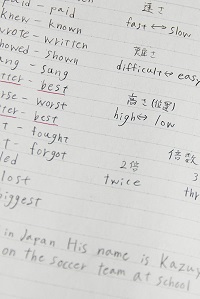 paid - paid
knew - known
wrote - written
showed - shown
sang - sung
better - best
worse - worst
better - best
- tought
- forgot
lost
biggest
速さ
fast ↔ slow
難さ
difficult ↔ easy
高さ(位置)
high ↔ low
2倍
twice
倍数
3
thr
in Japan His name is Kazuy
on the soccer team at school